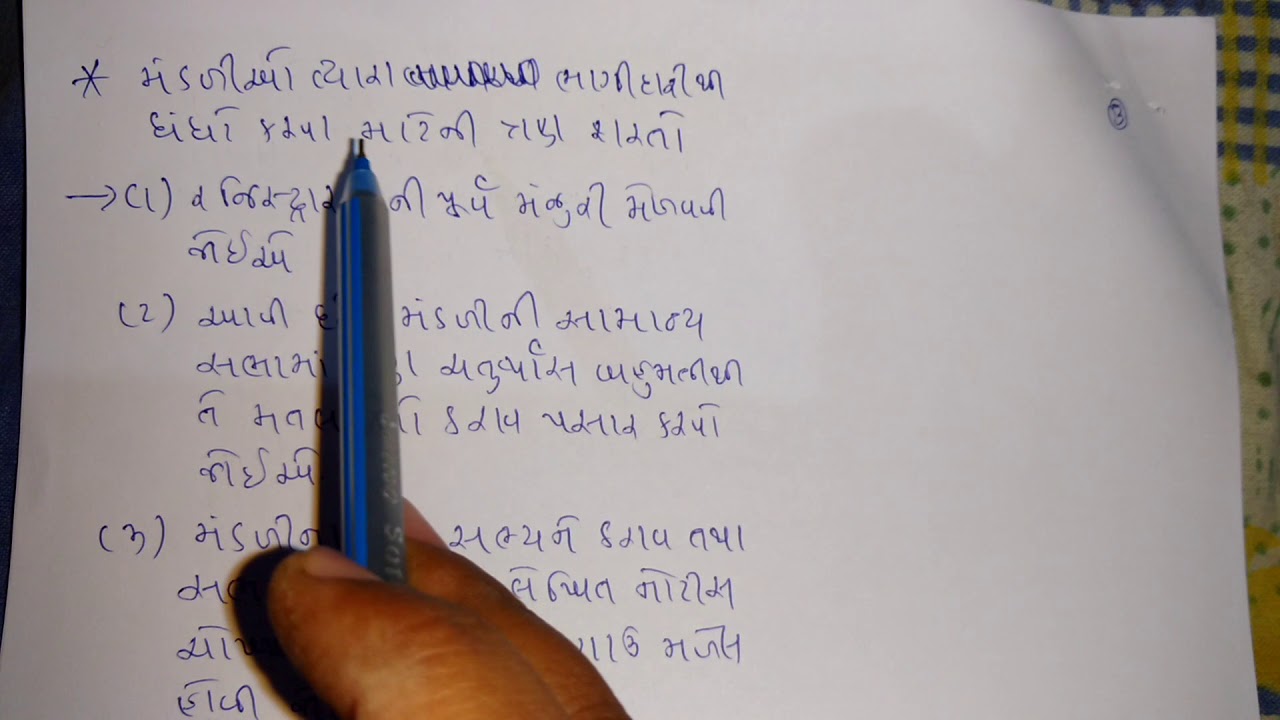 * મંડળીઓ દ્વારા ભાગીદારીથી
ધંધો કરવા માટેની ત્રણ શરતો
③
→ (1) રજિસ્ટ્રાર ની પૂર્વ મંજુરી મેળવવી
જોઈએ
(2) આવી મંડળીની સામાન્ય
સભામાં ચતુર્થાંસ બહુમતીથી
તે કરાવ પસાર કરવો
જોઈએ
(3) મંડળીના સભ્યને કરાવ તથા
લેખિત નોટીસ
મળેલ
હોવી